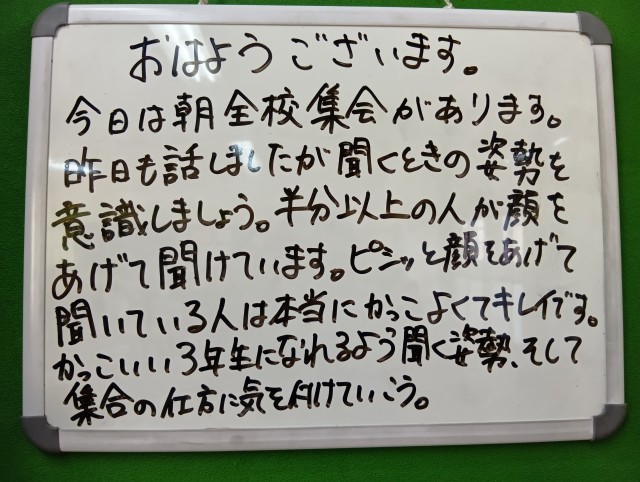 おはようございます。
今日は朝全校集会があります。
昨日も話しましたが聞くときの姿勢を
意識しましょう。半分以上の人が顔を
あげて聞けています。ピシッと顔をあげて
聞いている人は本当にかっこよくてキレイです。
かっこいい3年生になれるよう聞く姿勢、そして
集合の仕方に気を付けていこう。